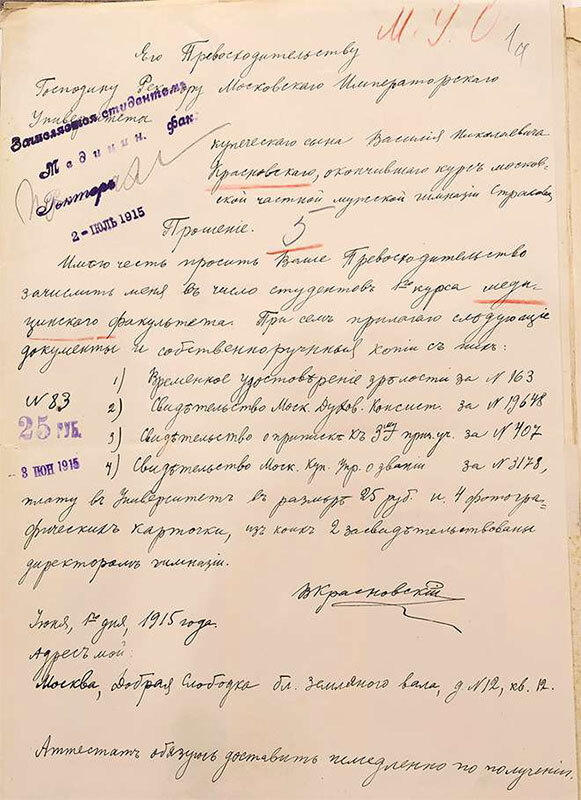 М. У. О
1а
Его Превосходительству
Господину Ректору Московского Императорского
Университета
Зачисляется студентомъ
Медицин. Фак.
Ректоръ
2 - ІЮЛЬ 1915
купеческаго сына Василія Николаевича
Красновскаго, окончившаго курсъ москов-
ской частной мужской гимназіи Страхова,
Прошеніе.
5
Имѣю честь просить Ваше Превосходительство
зачислить меня въ число студентовъ 1го курса меди-
цинскаго факультета. При семъ прилагаю слѣдующіе
документы и собственноручныя копіи съ нихъ:
1) Временное удостовѣреніе зрѣлости за N 163
N 83
2) Свидѣтельство Моск. Духов. Консист. за N 19648
25 РУБ.
3) Свидѣтельство о припискѣ къ 3му приз. уч. за N 407
- 3 ІЮН 1915
4) Свидѣтельство Моск. Куп. Упр. о званіи за N 3178,
плату въ Университетъ въ размѣрѣ 25 руб. и 4 фотогра-
фическихъ карточки, изъ коихъ 2 засвидѣтельствованы
директоромъ гимназіи.
ВКрасновскій
Іюня, 1го дня, 1915 года.
Адресъ мой:
Москва, Добрая Слободка бл. Земляного вала, д N12, кв. 12.
Аттестатъ обязуюсь доставить немедленно по полученіи.